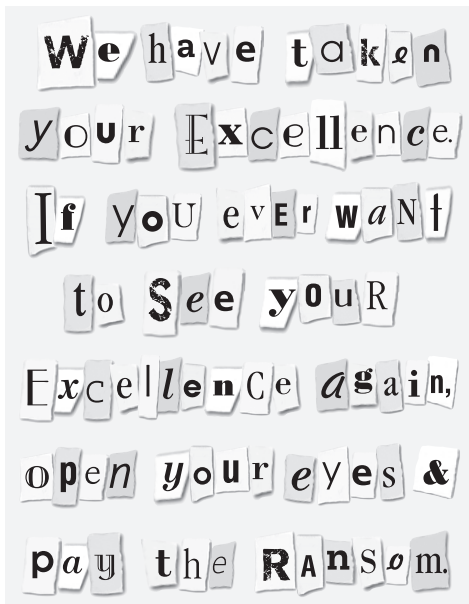 We have taken
your Excellence.
If you evEr waNt
to See youR
Excellence again,
open your eyes &
pay the RAnsom.